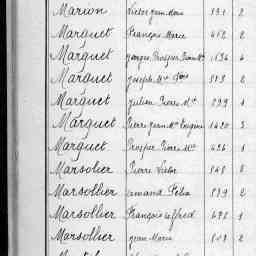 Marion Victor Jean Marie 551 2
Marguet François Marie 452 2
Marguet Georges Prosper Pierre Mie 1634 4
Marguet Joseph Mie 553 2
Marguet Julien Pierre Mie 899 1
Marguet Pierre Jean Mie Eugène 1420 3
Marguet Prosper Pierre Mie 426 1
Marsolier Pierre Victor 548
Marsollier Armand Félix 559 2
Marsollier François Alfred 498 1
Marsollier Jean Marie 2